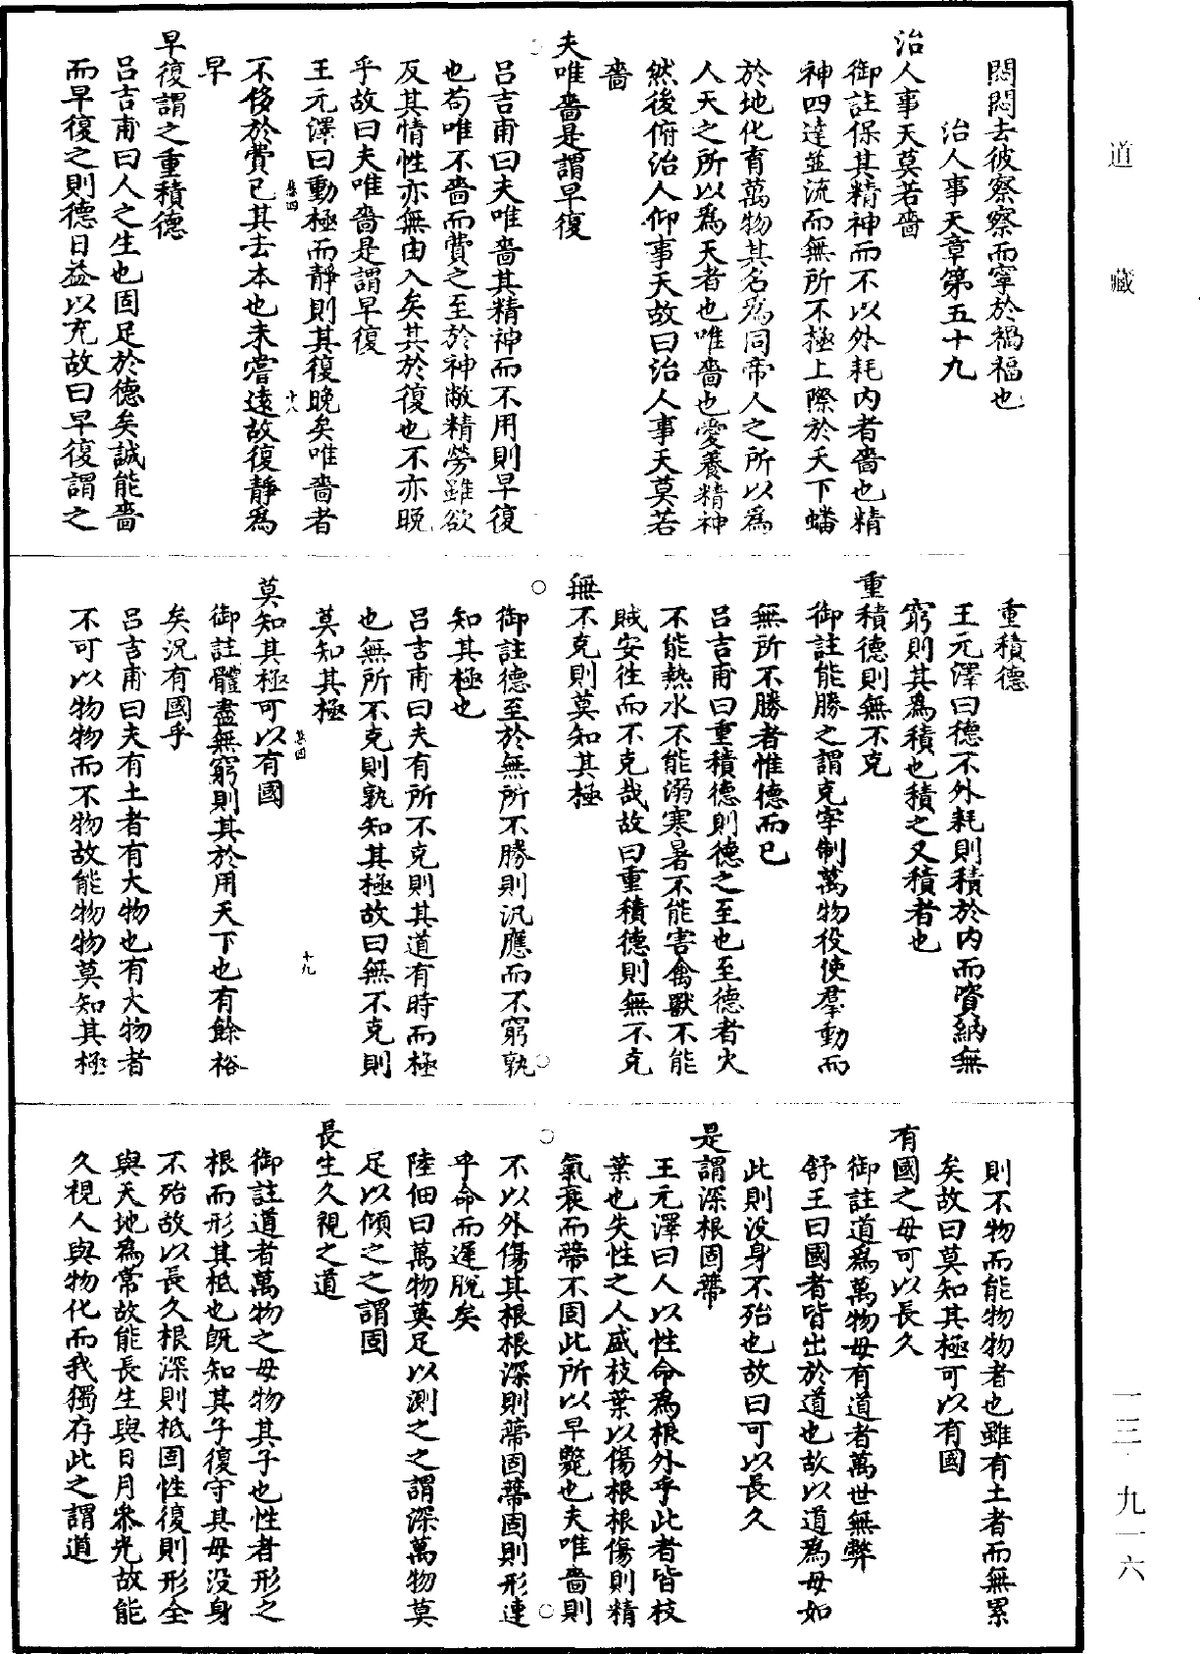 道藏
悶悶去彼察察而寧於禍福也
治人事天章第五十九
治人事天莫若嗇
御註保其精神而不以外耗内者嗇也精
神四達並流而無所不極上際於天下蟠
於地化育萬物其名為同帝人之所以為
人天之所以為天者也唯嗇也愛養精神
然後俯治人仰事天故曰治人事天莫若
嗇
夫唯嗇是謂早復
呂吉甫曰夫唯嗇其精神而不用則早復
也苟唯不嗇而費之至於神敝精勞雖欲
反其情性亦無由入矣其於復也不亦晚
乎故曰夫唯嗇是謂早復
王元澤曰動極而靜則其復晚矣唯嗇者
不侈於費已其去本也未嘗遠故復靜為
早
早復謂之重積德
呂吉甫曰人之生也固足於德矣誠能嗇
而早復之則德日益以充故曰早復謂之
重積德
王元澤曰德不外耗則積於内而資納無
窮則其為積也積之又積者也
重積德則無不克
御註能勝之謂克宰制萬物役使羣動而
無所不勝者惟德而已
呂吉甫曰重積德則德之至也至德者火
不能熱水不能溺寒暑不能害禽獸不能
賊安往而不克哉故曰重積德則無不克
無不克則莫知其極
御註德至於無所不勝則汎應而不窮孰
知其極也
呂吉甫曰夫有所不克則其道有時而極
也無所不克則孰知其極故曰無不克則
莫知其極
十九
莫知其極可以有國
御註體盡無窮則其於用天下也有餘裕
矣況有國乎
呂吉甫曰夫有土者有大物也有大物者
不可以物物而不物故能物物莫知其極
則不物而能物物者也雖有土者而無累
矣故曰莫知其極可以有國
有國之母可以長久
御註道為萬物母有道者萬世無弊
舒王曰國者皆出於道也故以道為母如
此則没身不殆也故曰可以長久
是謂深根固蔕
王元澤曰人以性命為根外乎此者皆枝
葉也失性之人盛枝葉以傷根根傷則精
氣衰而蔕不固此所以早斃也夫唯嗇則
不以外傷其根根深則蔕固蔕固則形連
乎命而遲脫矣
陸佃曰萬物莫足以測之之謂深萬物莫
足以傾之之謂固
長生久視之道
御註道者萬物之母物其子也性者形之
根而形其柢也既知其子復守其母没身
不殆故以長久根深則柢固性復則形全
與天地為常故能長生與日月參光故能
久視人與物化而我獨存此之謂道
一三·九一六